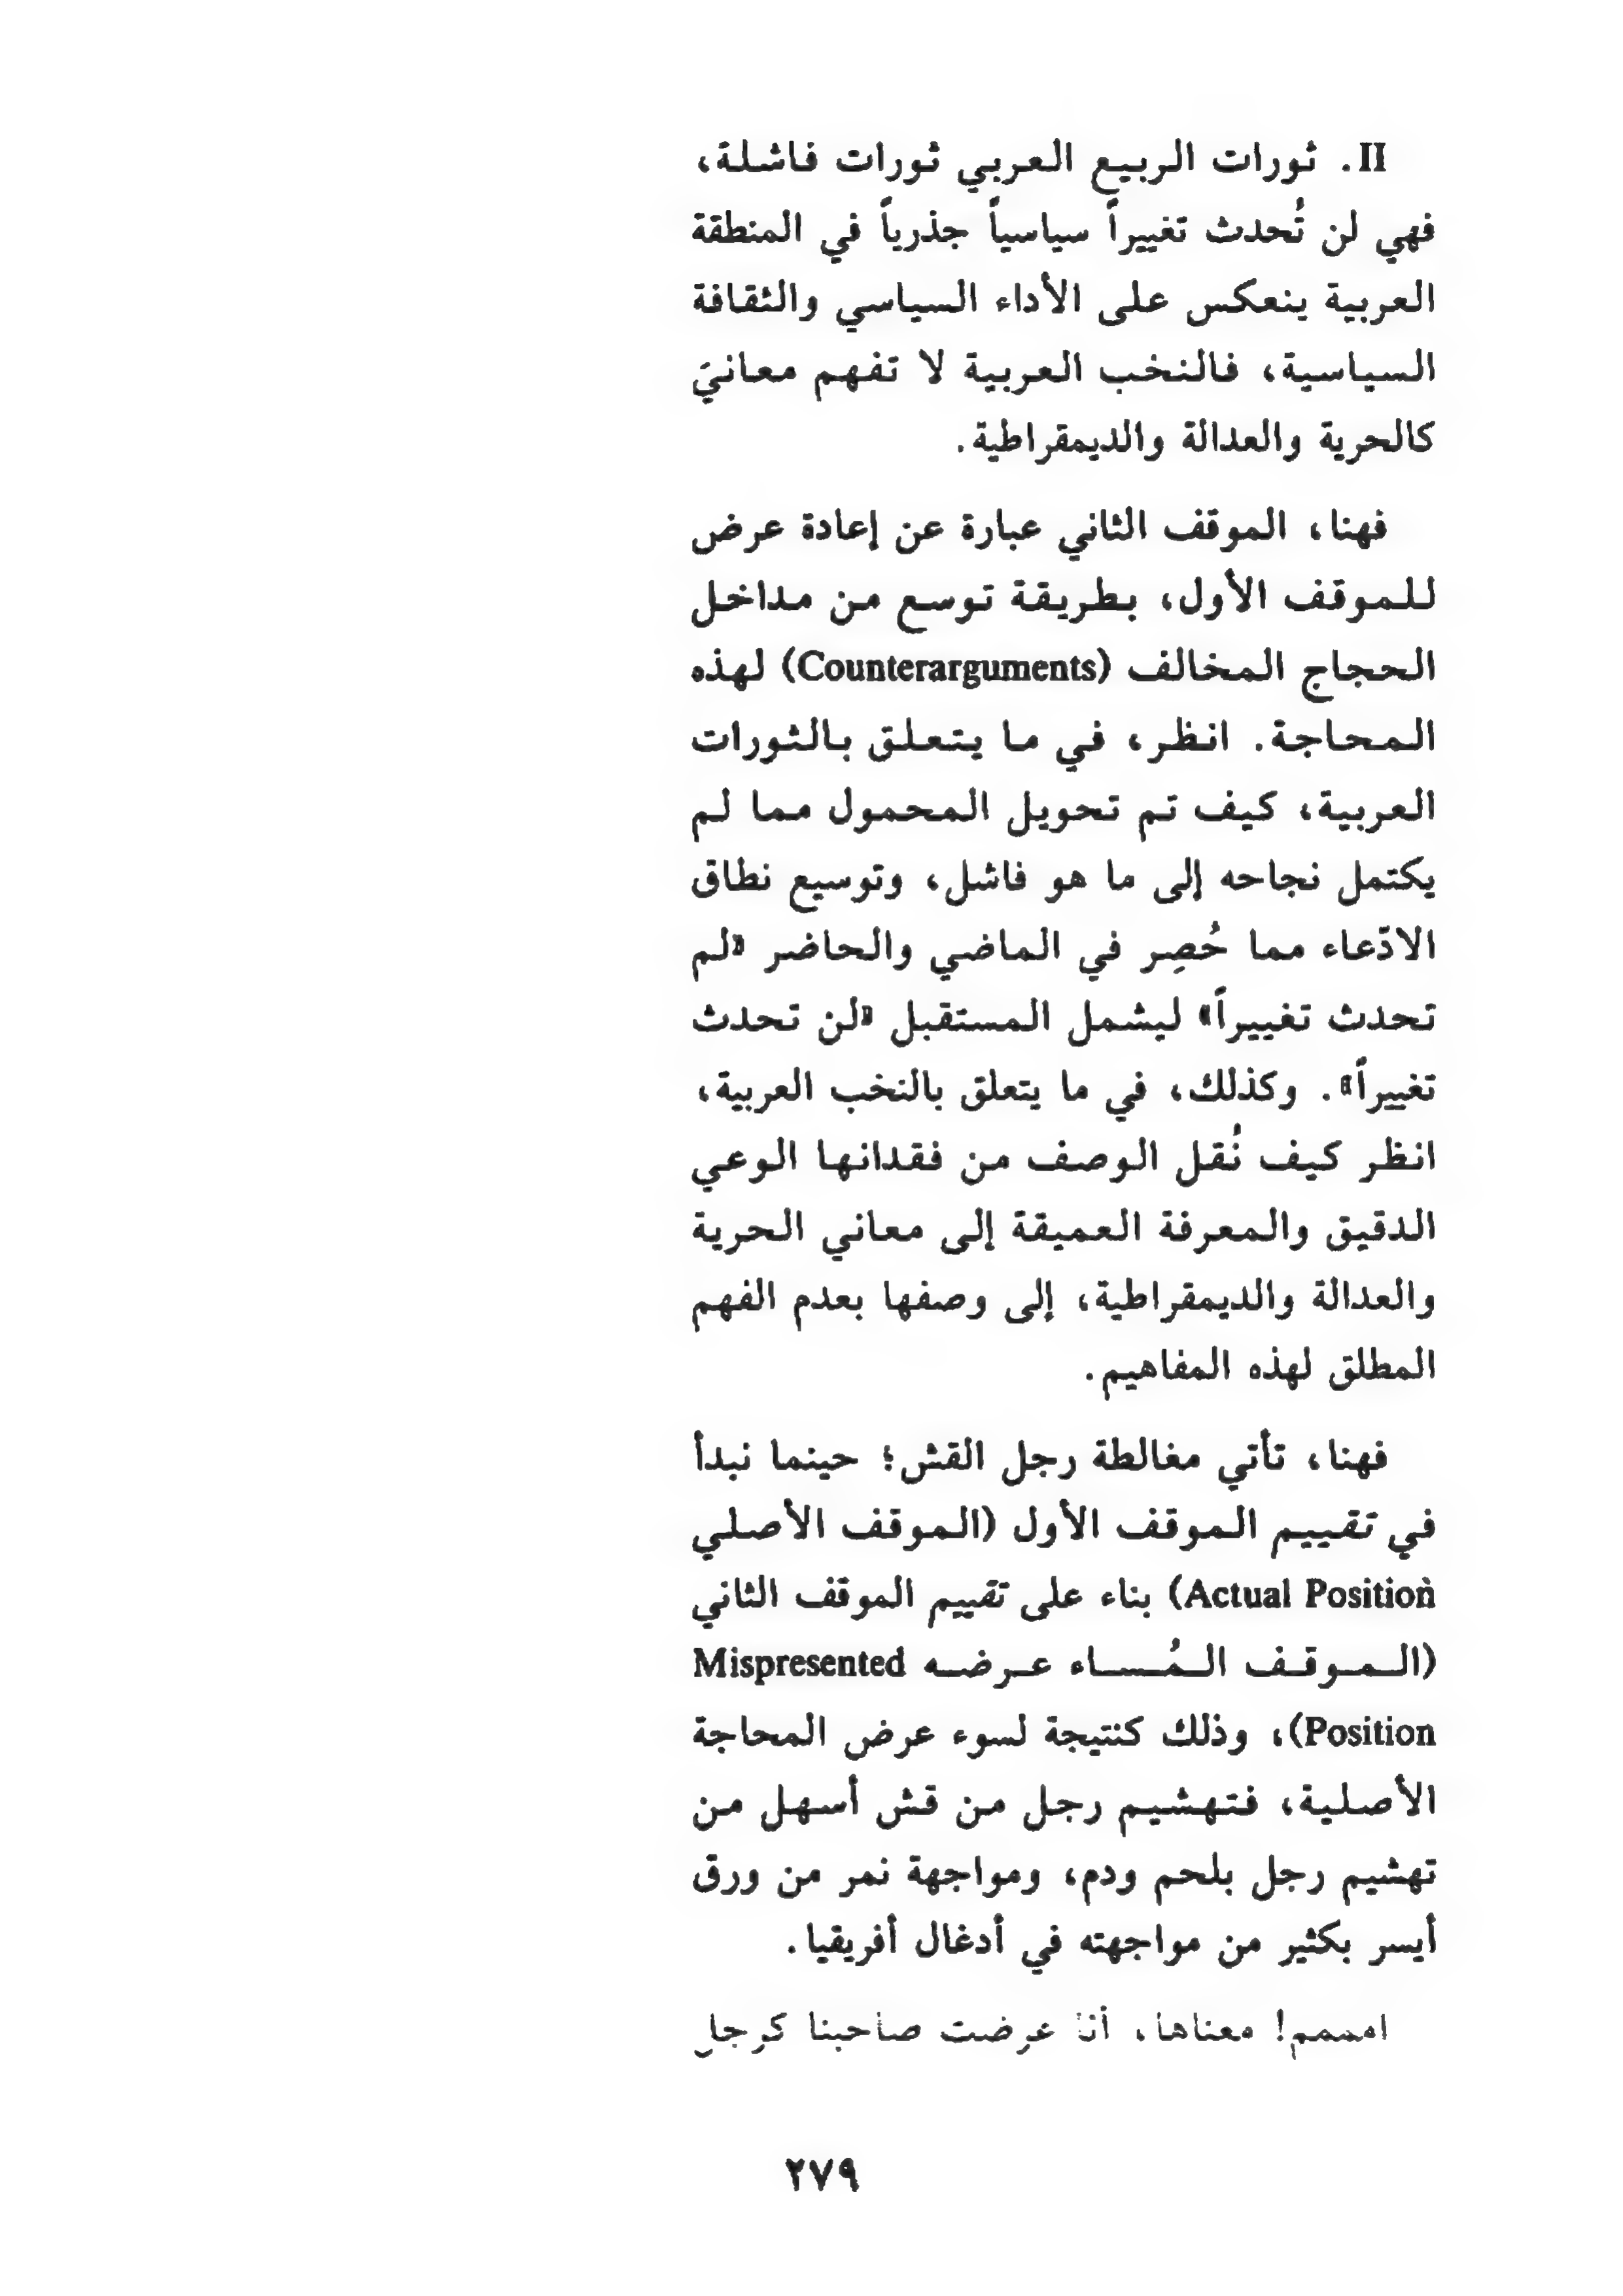 II. ثورات الربيع العربي ثورات فاشلة،
فهي لن تُحدث تغييراً سياسياً جذرياً في المنطقة
العربية ينعكس على الأداء السياسي والثقافة
السياسية، فالنخب العربية لا تفهم معانيَ
كالحرية والعدالة والديمقراطية.
فهنا، الموقف الثاني عبارة عن إعادة عرض
للموقف الأول، بطريقة توسع من مداخل
الحجاج المخالف (Counterarguments) لهذه
المحاجة. انظر، في ما يتعلق بالثورات
العربية، كيف تم تحويل المحمول مما لم
يكتمل نجاحه إلى ما هو فاشل، وتوسيع نطاق
الادّعاء مما حُصِر في الماضي والحاضر «لم
تحدث تغييراً» ليشمل المستقبل «لن تحدث
تغييراً». وكذلك، في ما يتعلق بالنخب العربية،
انظر كيف نُقل الوصف من فقدانها الوعي
الدقيق والمعرفة العميقة إلى معاني الحرية
والعدالة والديمقراطية، إلى وصفها بعدم الفهم
المطلق لهذه المفاهيم.
فهنا، تأتي مغالطة رجل القش؛ حينما نبدأ
في تقييم الموقف الأول (الموقف الأصلي
Actual Position) بناء على تقييم الموقف الثاني
(الموقف المُساء عرضه Mispresented
Position)، وذلك كنتيجة لسوء عرض المحاجة
الأصلية، فتهشيم رجل من قش أسهل من
تهشيم رجل بلحم ودم، ومواجهة نمر من ورق
أيسر بكثير من مواجهته في أدغال أفريقيا.
اممممم! معناها، أنا عرضت صاحبنا كرجل
٢٧٩